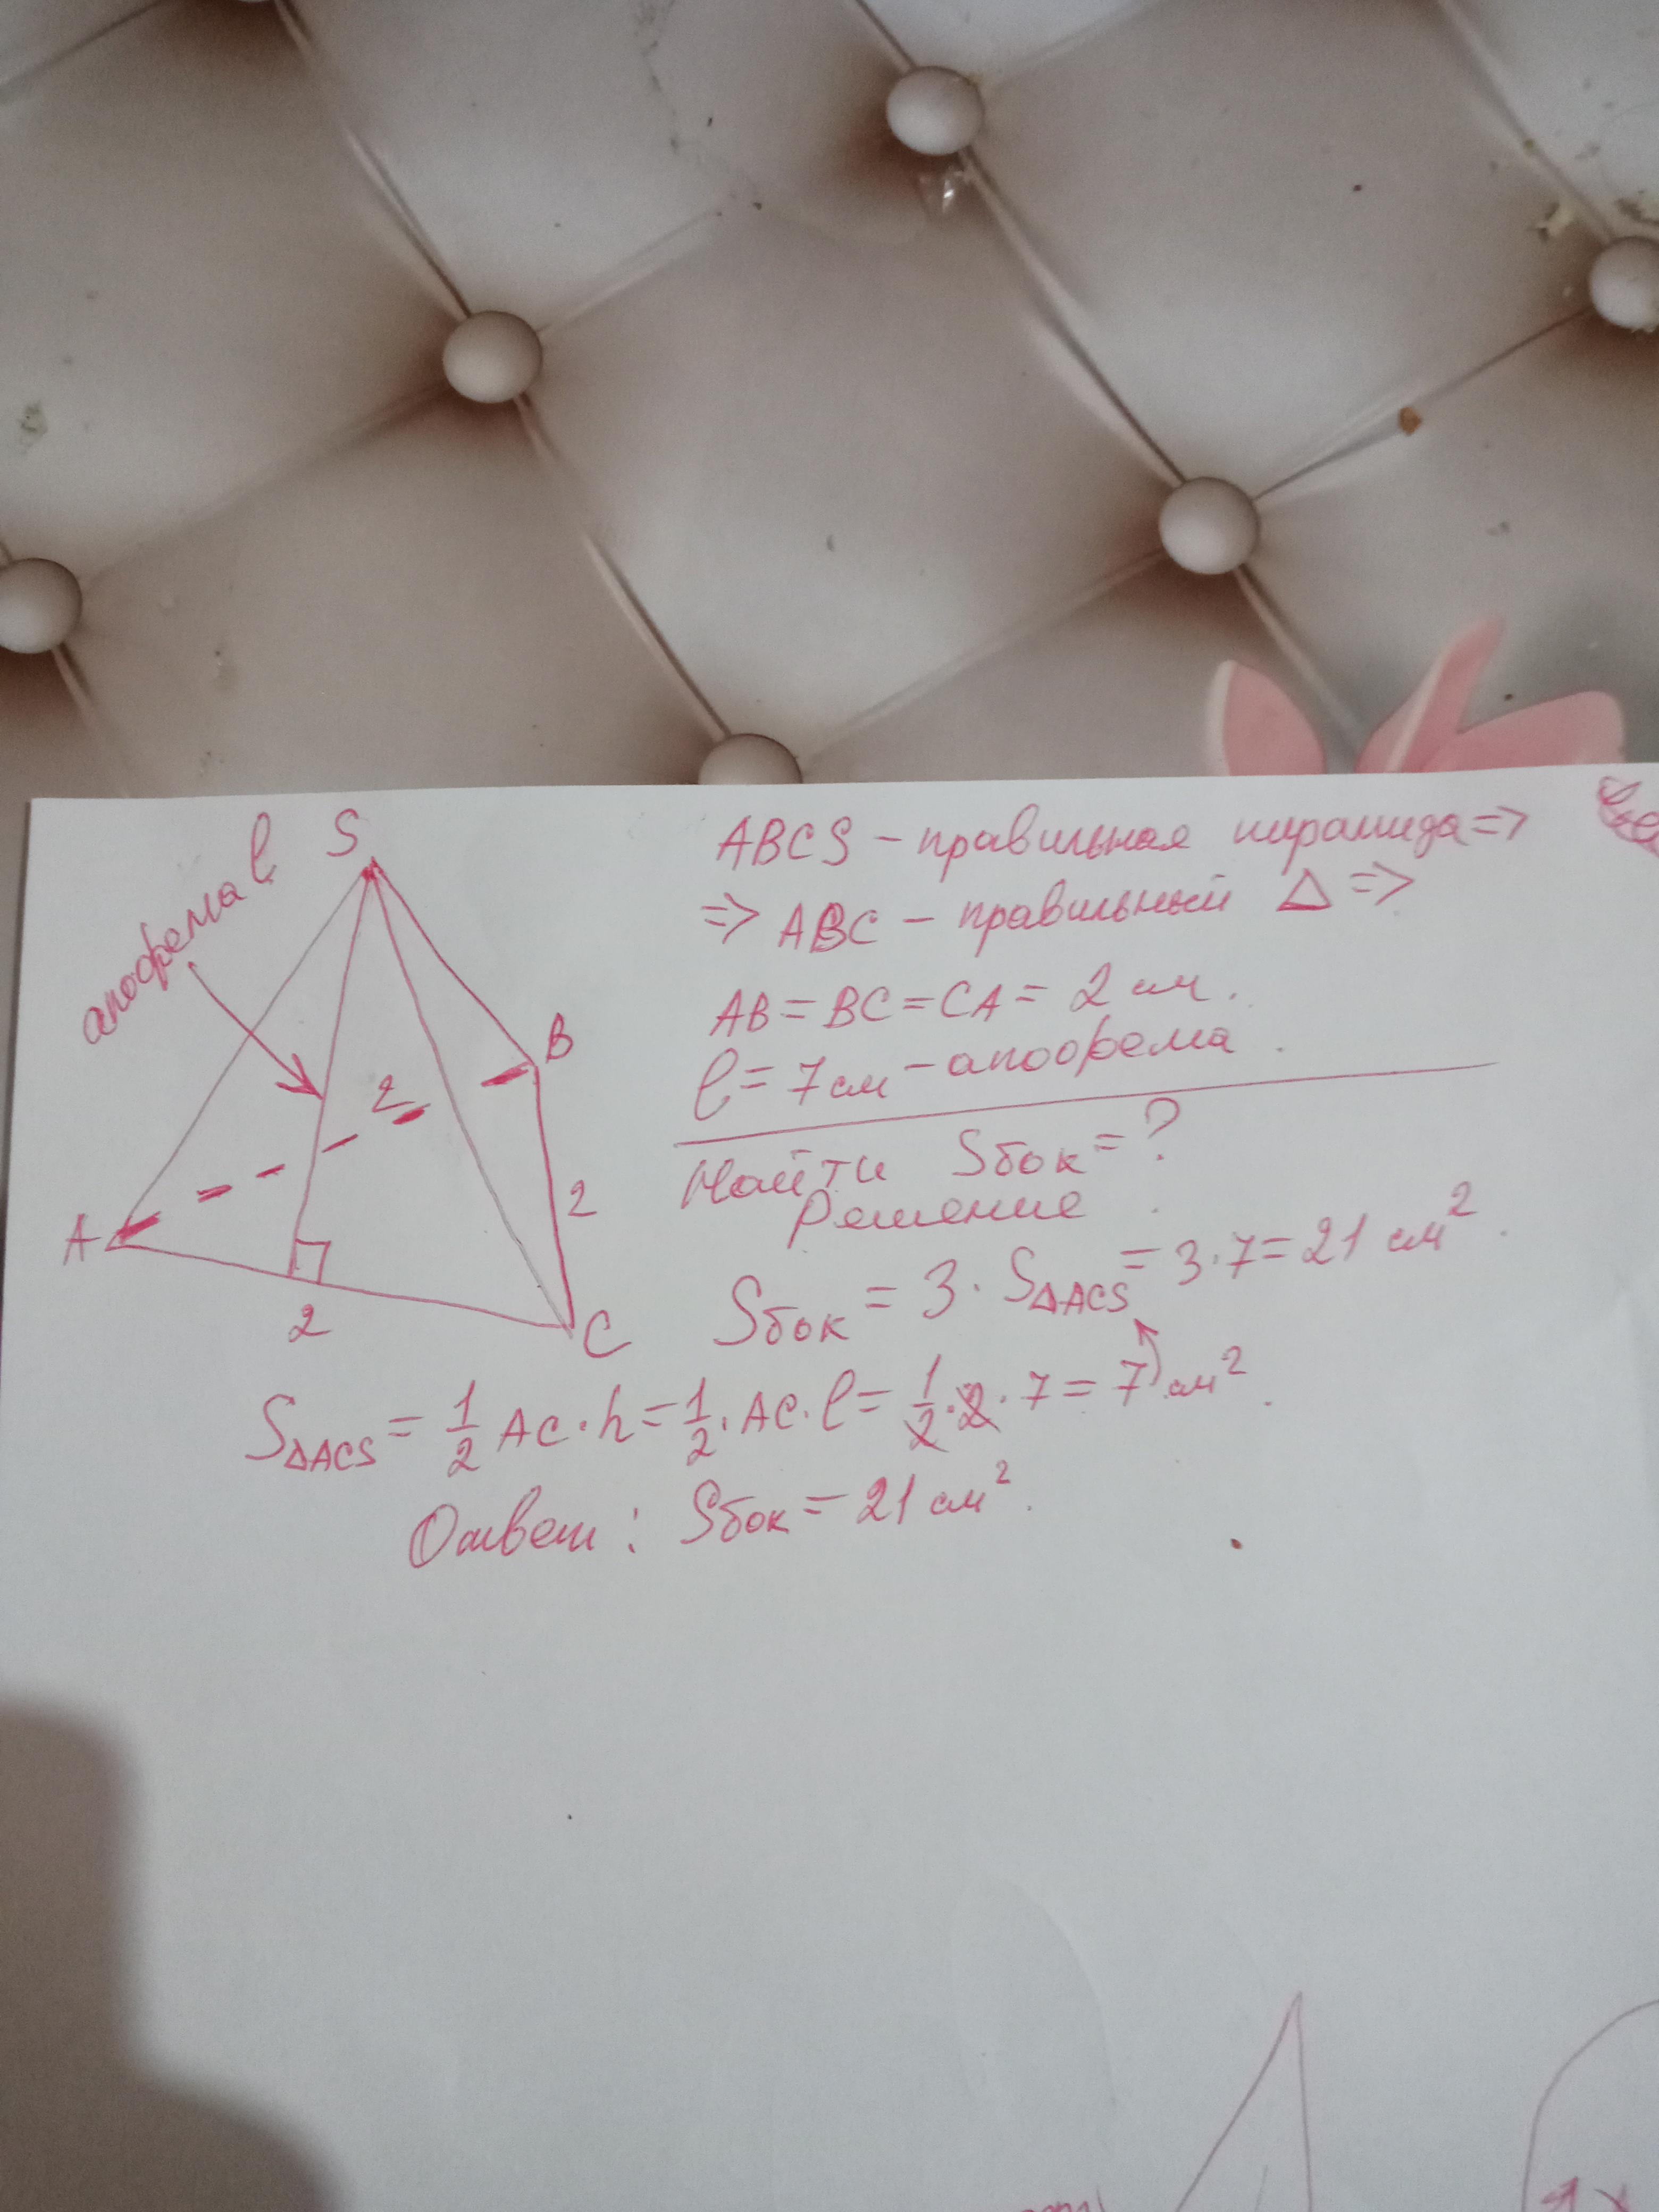 апофема l
S
A
B
C
2
2
2
ABCS – правильная пирамида =>
=> ABC – правильный Δ =>
AB = BC = CA = 2 см.
l = 7 см – апофема.
Найти Sбок = ?
Решение.
Sбок = 3 · SΔACS = 3 · 7 = 21 см².
SΔACS = 1/2 AC · h = 1/2 · AC · l = 1/2 · 2 · 7 = 7 см².
Ответ: Sбок = 21 см².